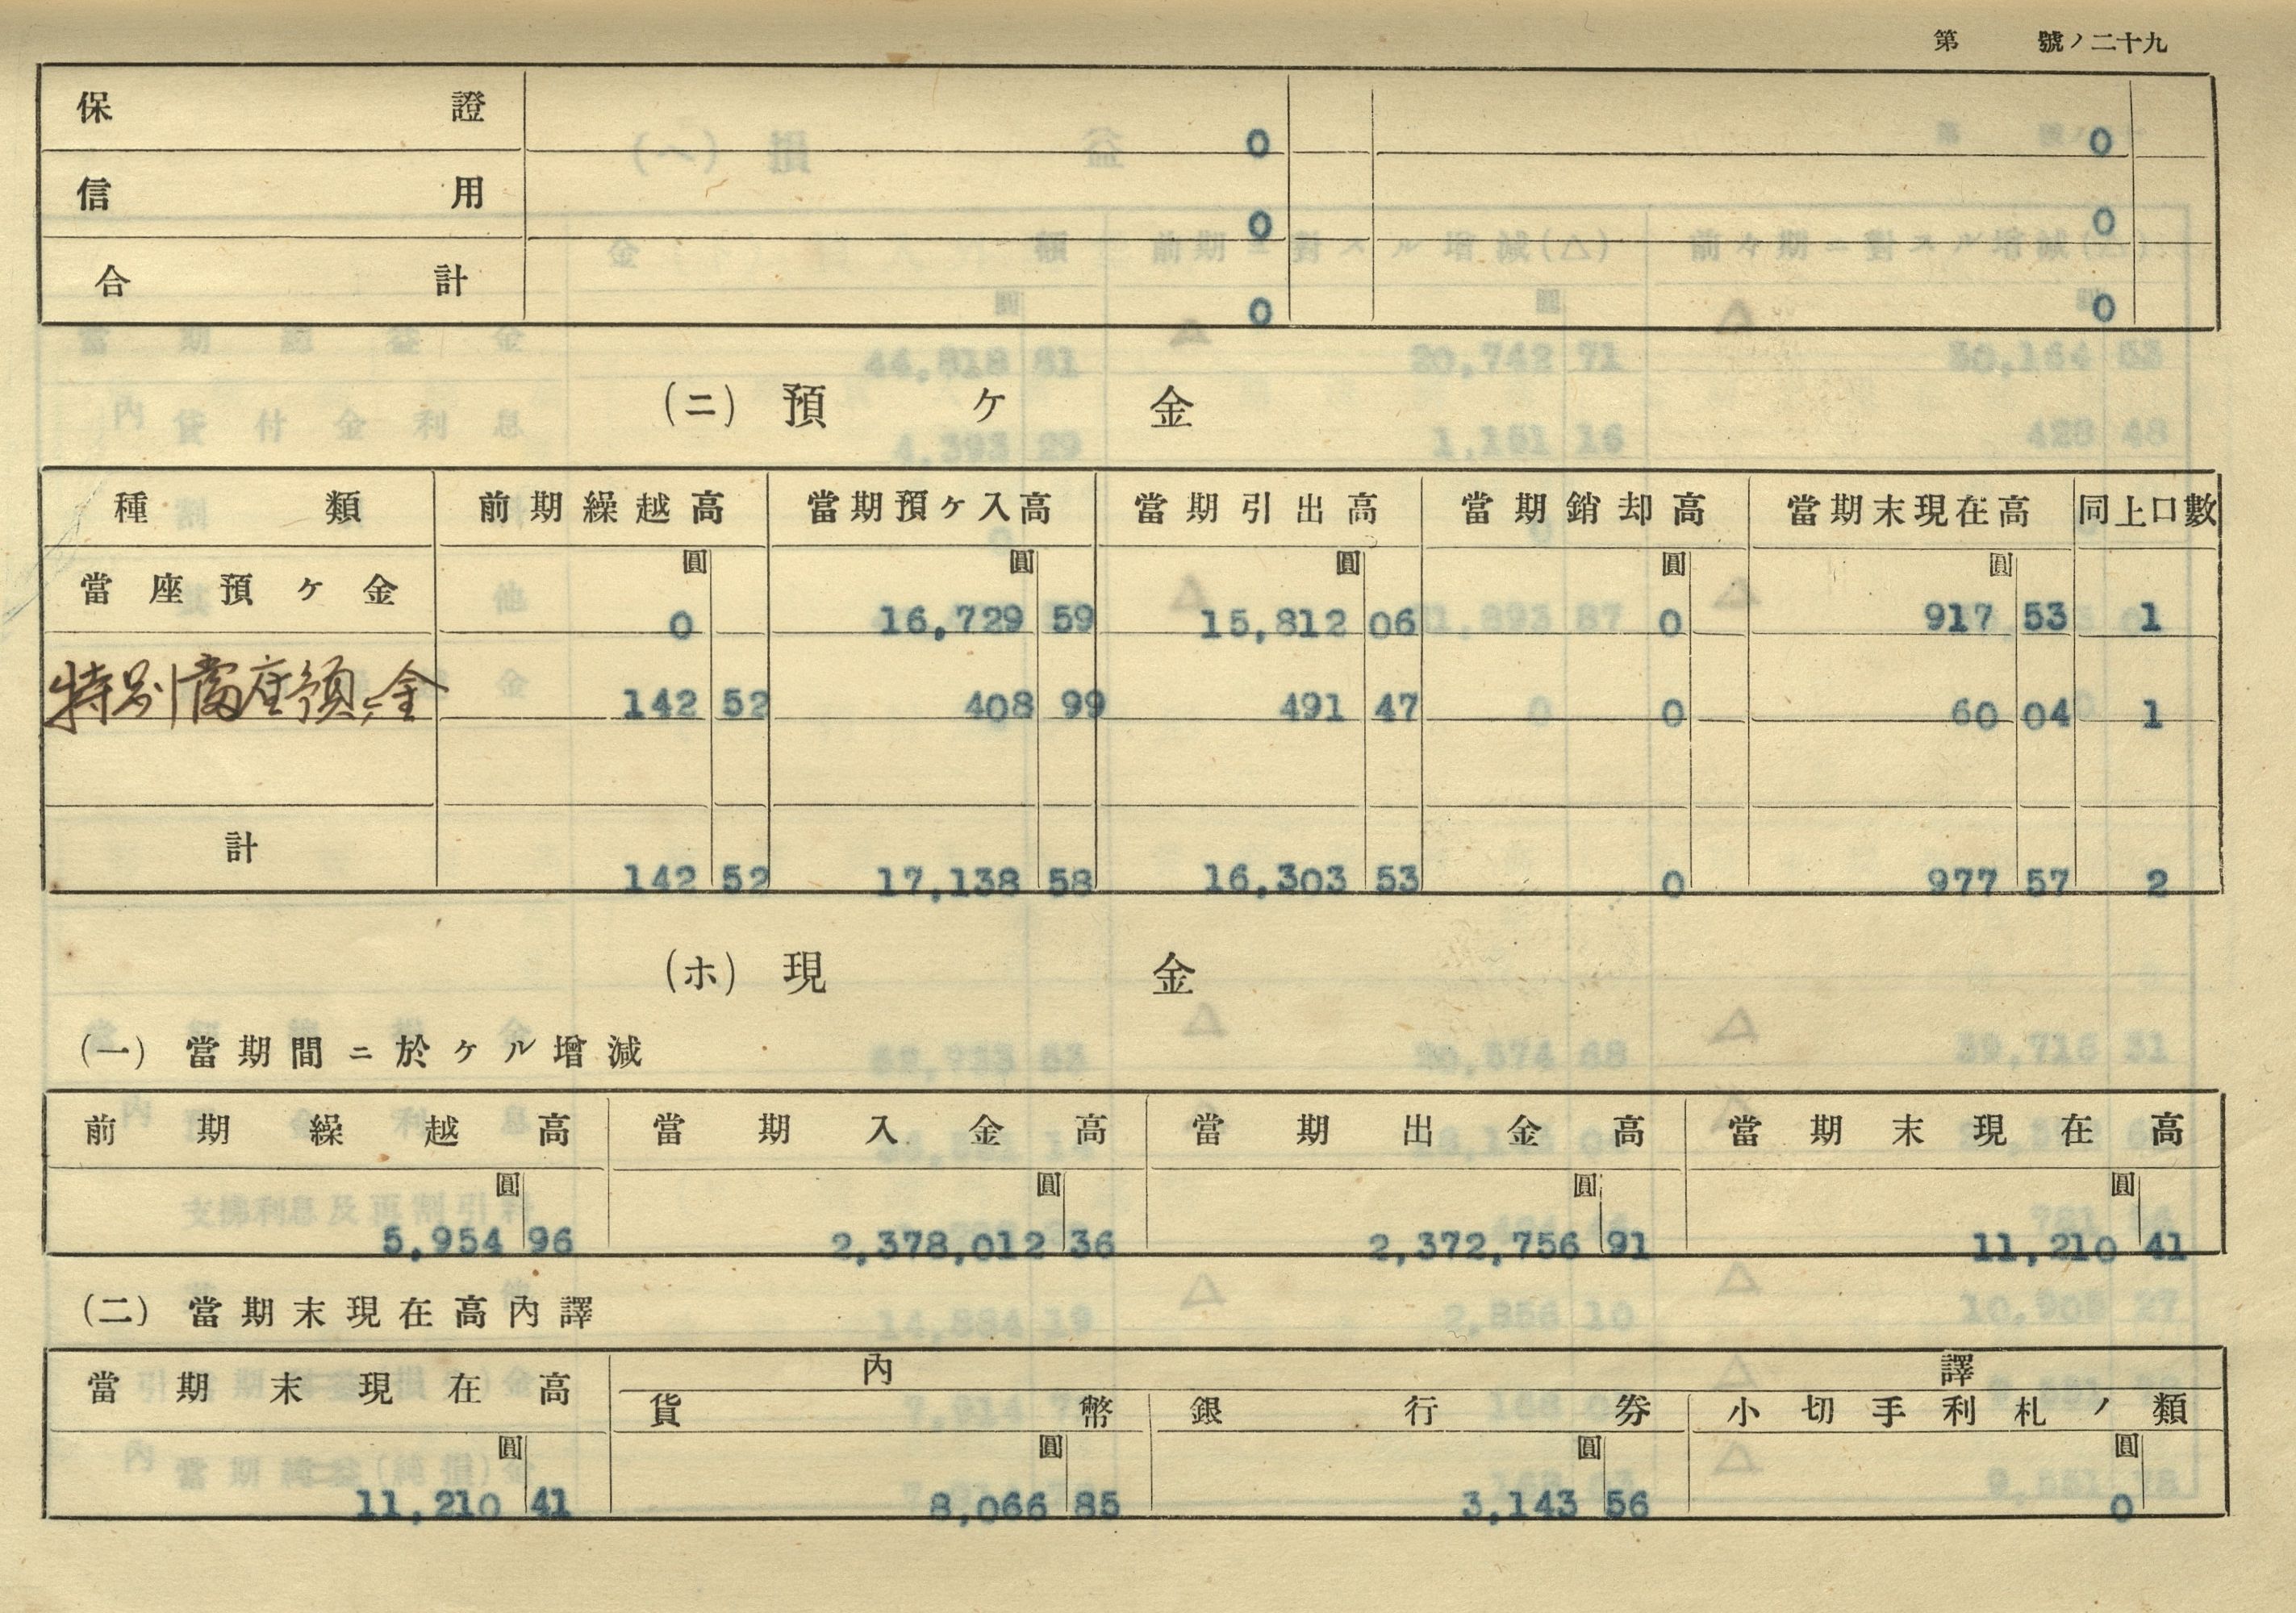 第 號ノ二十九
保證 0 0
信用 0 0
合計 0 0
(ニ) 預ケ金
種類 前期繰越高 當期預ケ入高 當期引出高 當期銷却高 當期末現在高 同上口數
圓 圓 圓 圓 圓
當座預ケ金 0 16,729 59 15,812 06 0 917 53 1
特別當座預ヶ金 142 52 408 99 491 47 0 60 04 1
計 142 52 17,138 58 16,303 53 0 977 57 2
(ホ) 現金
(一) 當期間ニ於ケル增減
前期繰越高 當期入金高 當期出金高 當期末現在高
圓 圓 圓 圓
5,954 96 2,378,012 36 2,372,756 91 11,210 41
(二) 當期末現在高內譯
當期末現在高 內譯
貨幣 銀行券 小切手利札ノ類
圓 圓 圓 圓
11,210 41 8,066 85 3,143 56 0